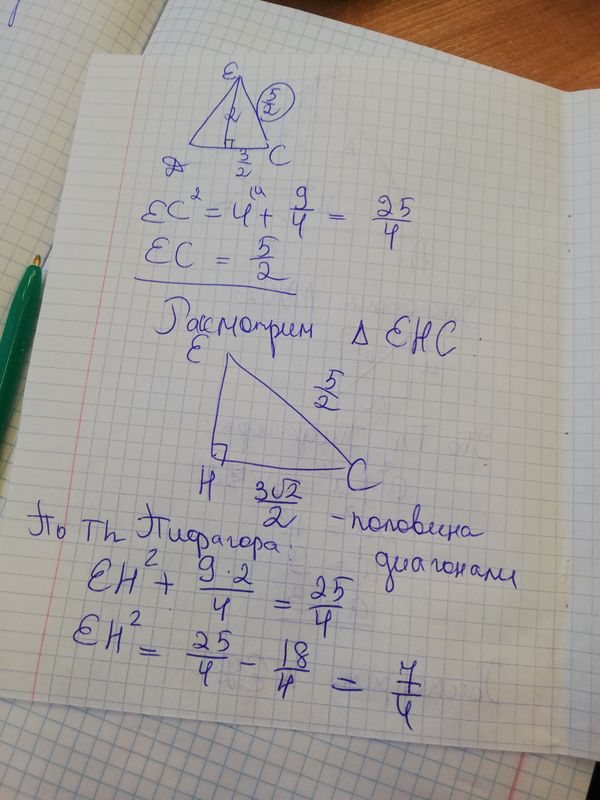 E
5/2
2
3/2
Д
C
EC² = 4^(4 + 9/4 = 25/4
EC = 5/2
Рассмотрим Δ EHC:
E
5/2
H
C
3√2/2 - половина
диагонали
По Th Пифагора:
EH² + 9·2/4 = 25/4
EH² = 25/4 - 18/4 = 7/4